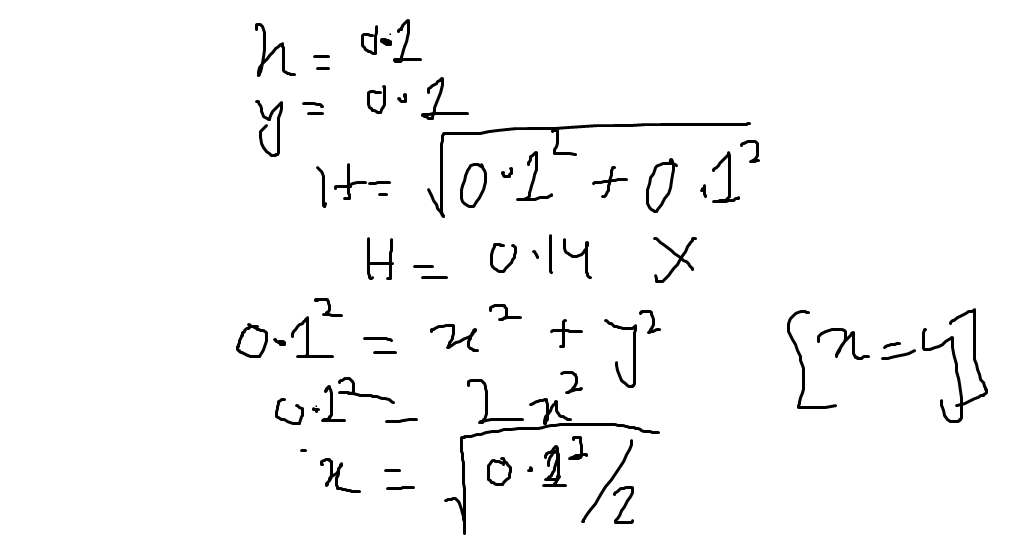 x = 0.1
y = 0.1
H = √(0.1² + 0.1²)
H = 0.14 X
0.1² = x² + y² [x = y]
0.1² = 2x²
x = √(0.1²/2)